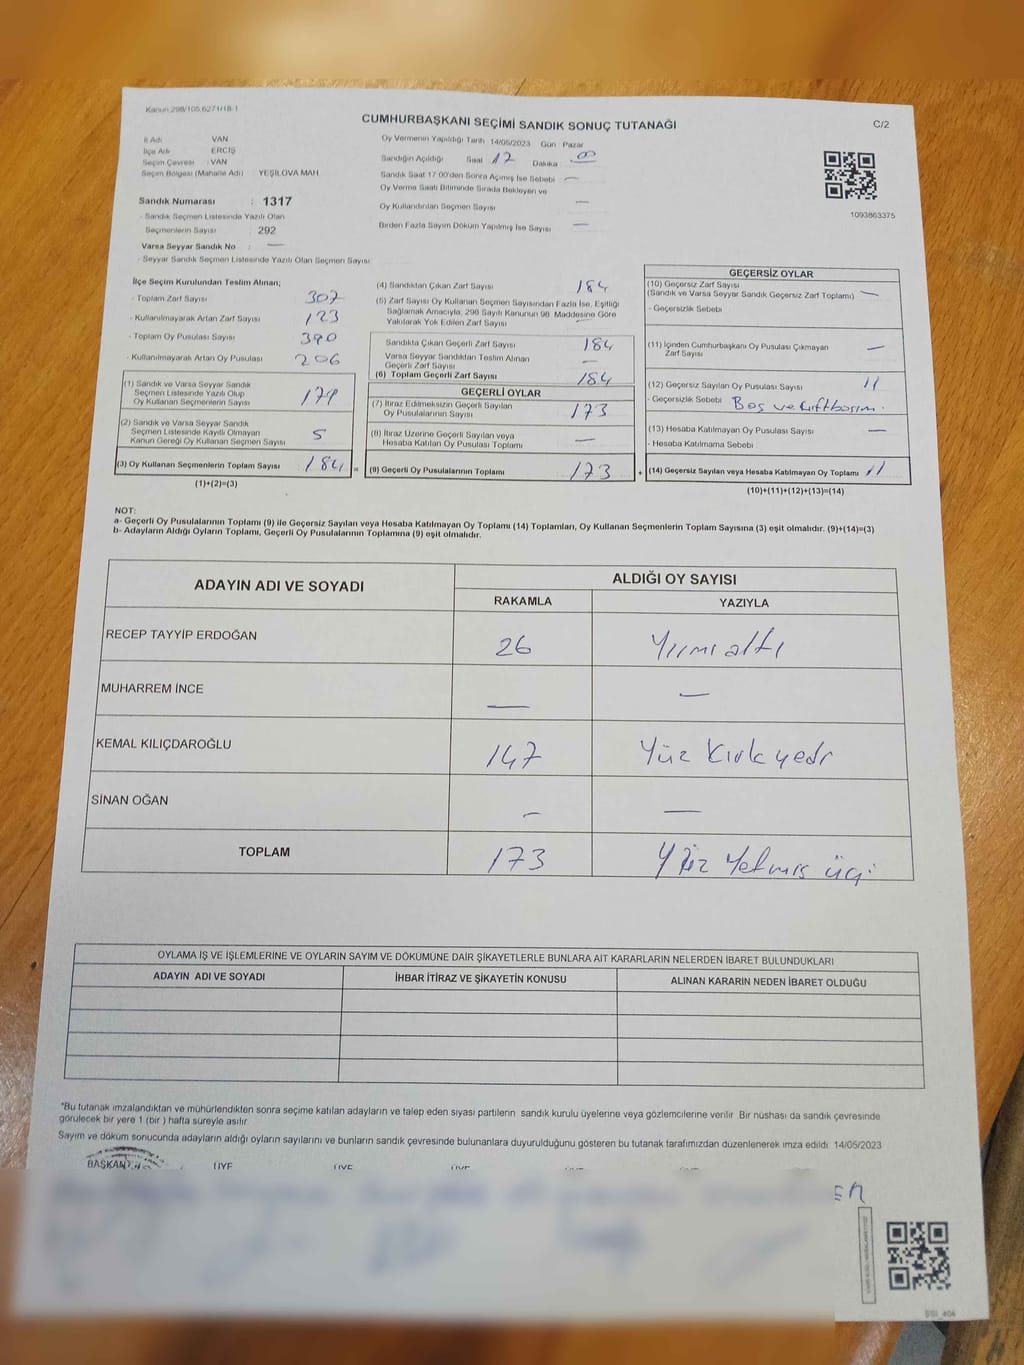 Kanun 298/105,6271/18-1
CUMHURBAŞKANI SEÇİMİ SANDIK SONUÇ TUTANAĞI
C/2
İl Adı VAN
İlçe Adı ERCİŞ
Seçim Çevresi : VAN
Seçim Bölgesi (Mahalle Adı) YEŞİLOVA MAH.
Sandık Numarası : 1317
- Sandık Seçmen Listesinde Yazılı Olan
Seçmenlerin Sayısı : 292
Varsa Seyyar Sandık No : —
- Seyyar Sandık Seçmen Listesinde Yazılı Olan Seçmen Sayısı:
Oy Vermenin Yapıldığı Tarih 14/05/2023 Gün Pazar
Sandığın Açıldığı Saat 17 Dakika 00
Sandık Saat 17:00'den Sonra Açımış İse Sebebi —
Oy Verme Saati Bitiminde Sırada Bekleyen ve
Oy Kullandırılan Seçmen Sayısı —
Birden Fazla Sayım Döküm Yapılmış İse Sayısı —
1093863375
İlçe Seçim Kurulundan Teslim Alınan;
- Toplam Zarf Sayısı 307
- Kullanılmayarak Artan Zarf Sayısı 123
- Toplam Oy Pusulası Sayısı 390
- Kullanılmayarak Artan Oy Pusulası 206
(1) Sandık ve Varsa Seyyar Sandık
Seçmen Listesinde Yazılı Olup
Oy Kullanan Seçmenlerin Sayısı 179
(2) Sandık ve Varsa Seyyar Sandık
Seçmen Listesinde Kayıtlı Olmayan
Kanun Gereği Oy Kullanan Seçmen Sayısı 5
(3) Oy Kullanan Seçmenlerin Toplam Sayısı 184 =
(1)+(2)=(3)
(4) Sandıktan Çıkan Zarf Sayısı 184
(5) Zarf Sayısı Oy Kullanan Seçmen Sayısından Fazla İse, Eşitliği
Sağlamak Amacıyla, 298 Sayılı Kanunun 98. Maddesine Göre
Yakılarak Yok Edilen Zarf Sayısı
Sandıkta Çıkan Geçerli Zarf Sayısı 184
Varsa Seyyar Sandıktan Teslim Alınan
Geçerli Zarf Sayısı —
(6) Toplam Geçerli Zarf Sayısı 184
GEÇERLİ OYLAR
(7) İtiraz Edilmeksizin Geçerli Sayılan
Oy Pusulalarının Sayısı 173
(8) İtiraz Üzerine Geçerli Sayılan veya
Hesaba Katılan Oy Pusulası Toplamı —
(9) Geçerli Oy Pusulalarının Toplamı 173 +
GEÇERSİZ OYLAR
(10) Geçersiz Zarf Sayısı
(Sandık ve Varsa Seyyar Sandık Geçersiz Zarf Toplamı) —
- Geçersizlik Sebebi
(11) İçinden Cumhurbaşkanı Oy Pusulası Çıkmayan
Zarf Sayısı —
(12) Geçersiz Sayılan Oy Pusulası Sayısı 11
- Geçersizlik Sebebi Boş ve çift basım.
(13) Hesaba Katılmayan Oy Pusulası Sayısı —
- Hesaba Katılmama Sebebi
(14) Geçersiz Sayılan veya Hesaba Katılmayan Oy Toplamı 11
(10)+(11)+(12)+(13)=(14)
NOT:
a- Geçerli Oy Pusulalarının Toplamı (9) ile Geçersiz Sayılan veya Hesaba Katılmayan Oy Toplamı (14) Toplamları, Oy Kullanan Seçmenlerin Toplam Sayısına (3) eşit olmalıdır. (9)+(14)=(3)
b- Adayların Aldığı Oyların Toplamı, Geçerli Oy Pusulalarının Toplamına (9) eşit olmalıdır.
ADAYIN ADI VE SOYADI
ALDIĞI OY SAYISI
RAKAMLA YAZIYLA
RECEP TAYYİP ERDOĞAN 26 Yirmi altı
MUHARREM İNCE — —
KEMAL KILIÇDAROĞLU 147 Yüz kırk yedi
SİNAN OĞAN — —
TOPLAM 173 Yüz Yetmiş üç
OYLAMA İŞ VE İŞLEMLERİNE VE OYLARIN SAYIM VE DÖKÜMÜNE DAİR ŞİKAYETLERLE BUNLARA AİT KARARLARIN NELERDEN İBARET BULUNDUKLARI
ADAYIN ADI VE SOYADI İHBAR İTİRAZ VE ŞİKAYETİN KONUSU ALINAN KARARIN NEDEN İBARET OLDUĞU
*Bu tutanak imzalandıktan ve mühürlendikten sonra seçime katılan adayların ve talep eden siyasi partilerin sandık kurulu üyelerine veya gözlemcilerine verilir. Bir nüshası da sandık çevresinde
görülecek bir yere 1 (bir ) hafta süreyle asılır.
Sayım ve döküm sonucunda adayların aldığı oyların sayılarını ve bunların sandık çevresinde bulunanlara duyurulduğunu gösteren bu tutanak tarafımızdan düzenlenerek imza edildi. 14/05/2023
BAŞKAN ÜYE ÜYE ÜYE